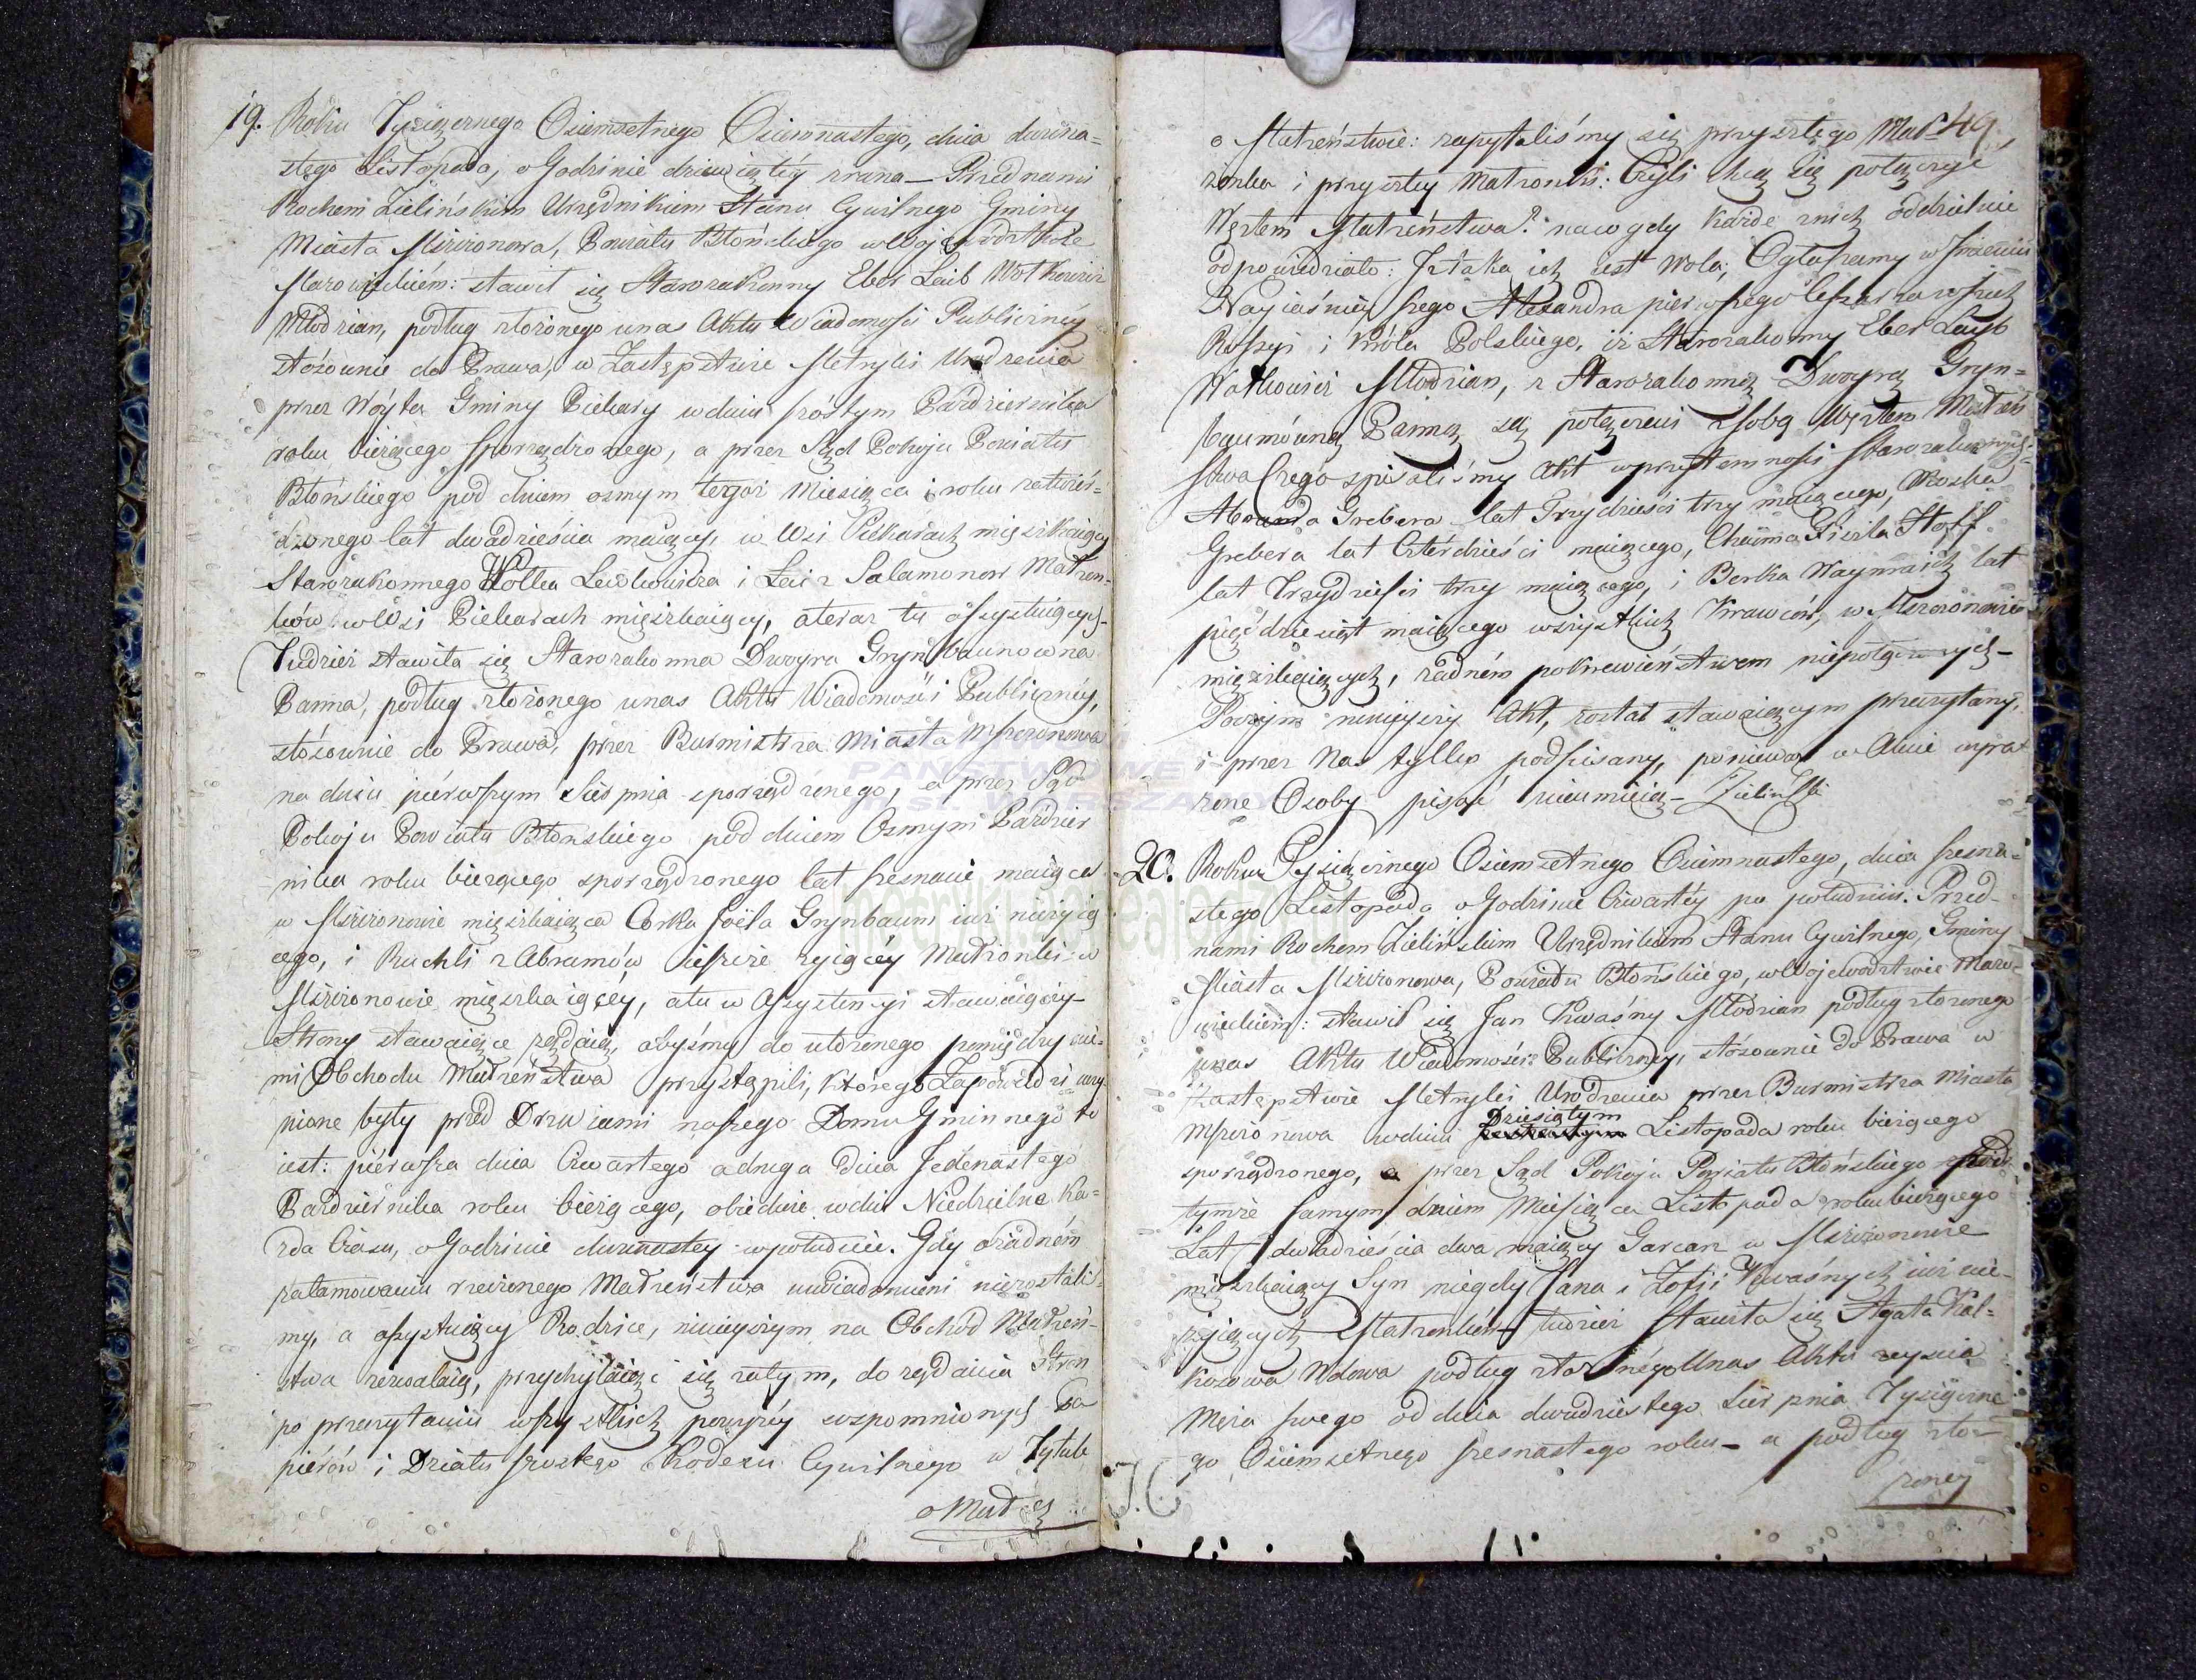 19. Roku Tysiącznego Osiemsetnego Osiemnastego, dnia dwuna=
stego Listopada, o Godzinie dziewiątéy zrana — Przed nami
Rochem Zielińskim Urzędnikiem Stanu Cywilnego Gminy
Miasta Mszczonowa, Powiatu Błońskiego w Wojewodztwie
Mazowieckiém: stawił się Starozakonny Eber Leib Wolkowicz
Młodzian, podług złożonego u nas Aktu Wiadomości Publicznéy
stósownie do Prawa, w Zastępstwie Metryki Urodzenia
przez Wóyta Gminy Piekary w dniu szóstym Pazdziernika
roku bieżącego sporządzonego, a przez Sąd Pokoju Powiatu
Błońskiego pod dniem osmym tegoż Miesiąca i roku zatwier=
dzonego lat dwadzieścia maiący, w Wsi Piekarach mięszkaiący
Starozakonnego Wolka Lewkowicza i Łai z Salamonow Małżon=
ków w Wsi Piekarach mięszkaiący, a teraz tu assystuiących-
Tudzież stawiła się Starozakonna Dwoyra Grynbaumowna
Panna, podług złożonego u nas Aktu Wiadomości Publicznéy,
stósownie do Prawa, przez Burmistrza Miasta Mszczonowa
na dniu piérwszym Sierpnia sporządzonego, a przez Sąd
Pokoju Powiatu Błonskiego pod dniem Osmym Pazdzier
nika roku bieżącego sporządzonego lat szesnaście maiąca
w Mszczonowie mięszkaiąca Corka Joela Grynbaum iuż nieżyią
cego, i Ruchli z Abramów ieszcze żyiącéy Małżonki w
Mszczonowie mięszkaiącéy, a tu w Assystencyi stawaiącéy-
Strony stawaiące żądaią, abyśmy do ułożonego pomiędzy nie=
mi Obchodu Małżeństwa przystąpili, którego Zapowiedzi uczy
nione były przed Drzwiami naszego Domu Gminnego to
iest: piérwsza dnia Czwartego a druga dnia Jedenastego
Pazdziernika roku bieżącego, obiedwie w dni Niedzielne Ka=
żda Czasu, o Godzinie dwunastey w południe. Gdy o żadném
zatamowaniu rzeczonego Małżeństwa uwiadomieni niezostali=
my, a assystuiący Rodzice, ninieyszym na Obchód Małżeń=
stwa zezwalaią, przychylaiąc się zatym, do żądania Stron
po przeczytaniu wszystkich powyżéy wspomnionych Pa
pierów i Działu szostego Kodexu Cywilnego w Tytule
o Małżeń
49
o Małżeństwie: zapytaliśmy się przyszłego Mał-
żonka i przyszłey Małżonki: Czyli chcą się połączyć
Węzłem Małżeństwa? na co gdy każde z nich oddzielnie
odpowiedziało: Iż taka ich iest Wola; Ogłaszamy w Imieniu
Nayiaśnieyszego Alexandra pierwszego Cesarza wszech
Rossyi i Króla Polskiego, iż Starozakonny Eber Leyb
Wolkowicz Młodzian, z Starozakonną Dwoyrą Gryn=
baumówną Panną są połączeni z sobą Węzłem Małżeń
stwa Czego spisaliśmy Akt w przytomności Starozakonnych=
Abrama Grebera lat Trzydzieści trzy maiącego, Moszka
Grebera lat Czterdzieści maiącego, Chaima Fiszla Hoff
lat Trzydzieści trzy maiącego, i Berka Waynraich lat
pięćdziesiąt maiącego wszystkich Krawców, w Mszczonowie
mięszkaiących, żadném pokrewieństwem niepołączonych-
Poczym ninieyszy Akt, został stawaiącym przeczytany,
i przez Nas tylko podpisany, ponieważ w Akcie wyra
żone Osoby pisać nieumieią- Zieliński
20. Roku Tysiącznego Osiemsetnego Osiemnastego, dnia szesna=
stego Listopada o Godzinie Czwartéy po południu. Przed-
nami Rochem Zielińskim Urzędnikiem Stanu Cywilnego, Gminy
Miasta Mszczonowa, Powiatu Błońskiego, w Wojewodztwie Mazo-
wieckiém: stawił się Jan Kwaśny Młodzian podług złożonego
u nas Aktu Wiadomości Publiczney, stósownie do Prawa w
Zastępstwie Metryki Urodzenia przez Burmistrza Miasta
Mszczonowa w dniu Dziesiątym Listopada roku bieżącego
sporządzonego, a przez Sąd Pokoju Powiatu Błońskiego pod
tymże samym dniem Miesiąca Listopada roku bieżącego
Lat dwadzieścia dwa maiący Garcarz w Mszczonowie
mięszkaiący Syn niegdy Jana i Zofii Kwaśnych iuż nie-
żyiących Małżonków tudzież stawiła się Agata Kal=
kozowa Wdowa podług złożonego u nas Aktu zeyścia
Męża swego od dnia dwudziestego Sierpnia Tysiączne
go Osiemsetnego szesnastego roku- a podług zło-
żoney